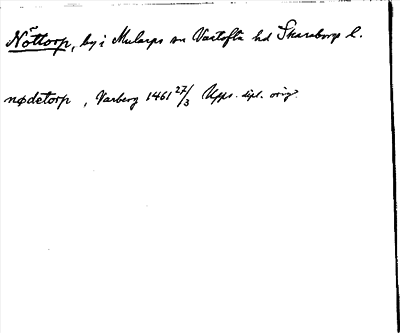 Nöttorp, by i Mularps sn Vartofta hd Skaraborgs l.
nødetorp , Varberg 1461 27/3 Upps. dipl. orig.